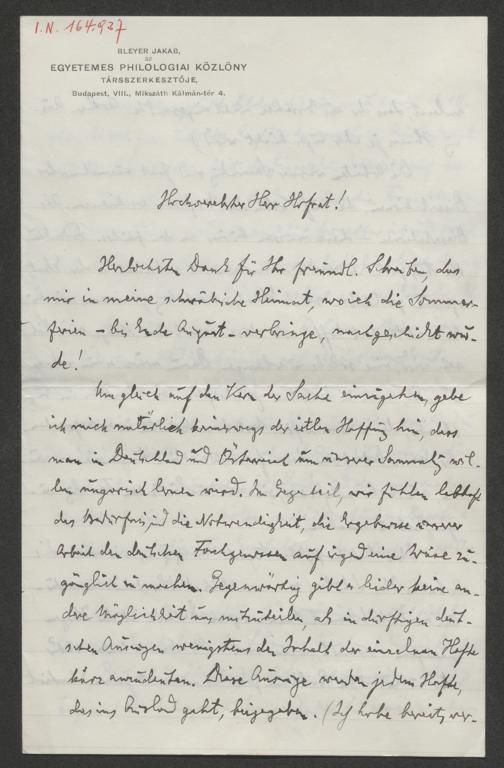 I.N. 164.937
BLEYER JAKAB,
AZ
EGYETEMES PHILOLOGIAI KÖZLÖNY
TÁRSSZERKESZTŐJE,
Budapest, VIII., Mikszáth Kálmán-tér 4.
Hochverehrter Herr Hofrat!
Herzlichsten Dank für Ihr freundl. Schreiben, das
mir in meine schwäbische Heimat, wo ich die Sommer-
ferien – bis Ende August – verbringe, nachgeschickt wur-
de!
Um gleich auf den Kern der Sache einzugehen, gebe
ich mich natürlich keineswegs der eitlen Hoffnung hin, dass
man in Deutschland und Österreich um unserer Sammlung wil-
len ungarisch lernen wird. Im Gegenteil, wir fühlen lebhaft
das Bedürfnis und die Notwendigkeit, die Ergebnisse unserer
Arbeit den deutschen Fachgenossen auf irgend eine Weise zu-
gänglich zu machen. Gegenwärtig gibt es leider keine an-
dere Möglichkeit uns mitzuteilen, als in dürftigen deut-
schen Auszügen wenigstens den Inhalt der einzelnen Hefte
kurz anzudeuten. Diese Auszüge werden jedem Hefte,
das ins Ausland geht, beigegeben. (Ich habe bereits ver-